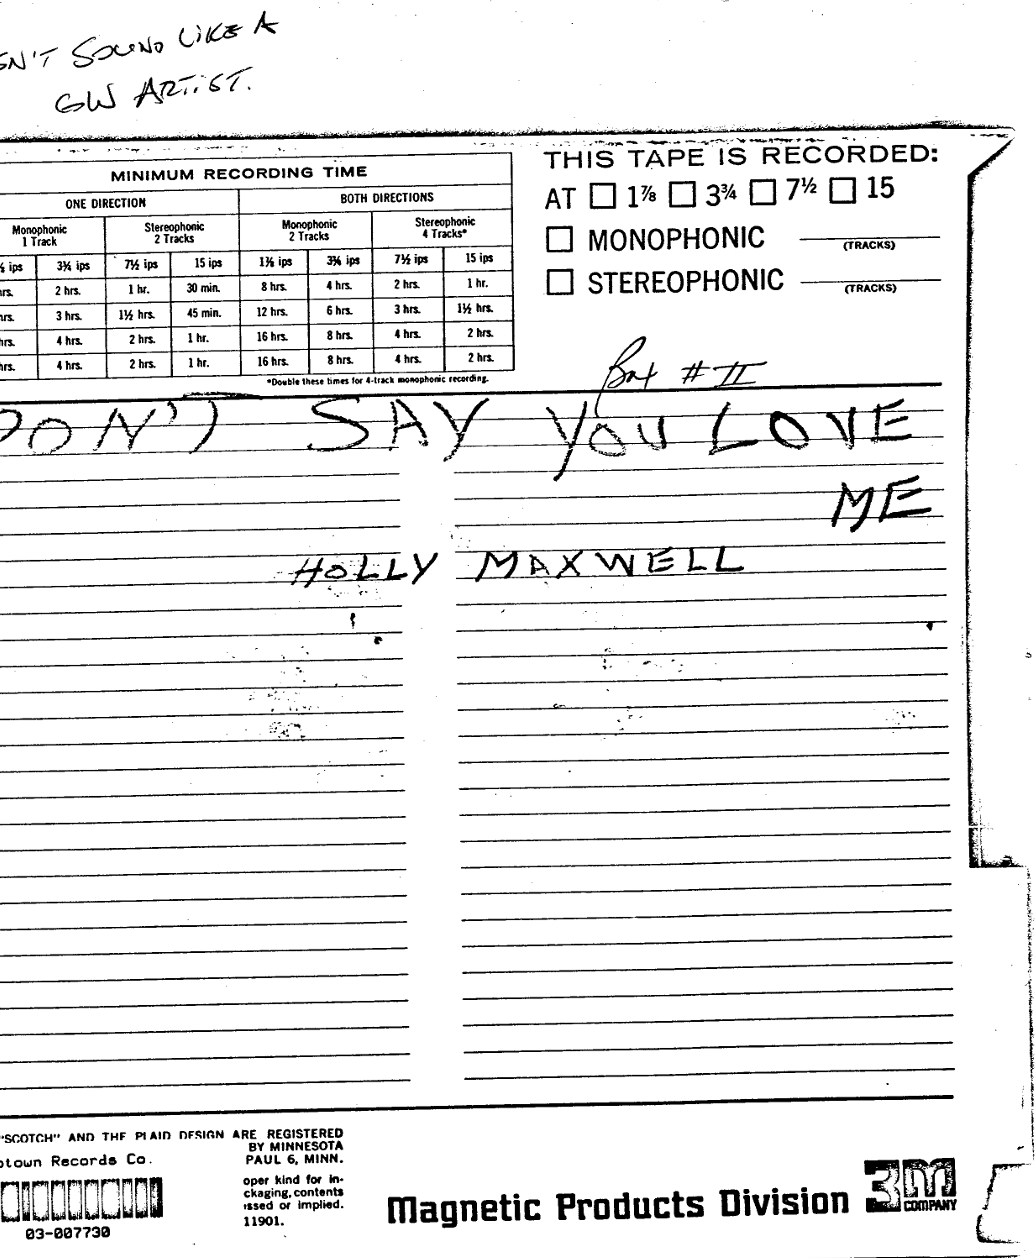 SOUND LIKE A
GW ARTIST.
MINIMUM RECORDING TIME
ONE DIRECTION BOTH DIRECTIONS
Monophonic 1 Track Stereophonic 2 Tracks Monophonic 2 Tracks Stereophonic 4 Tracks*
ips 3¾ ips 7½ ips 15 ips 1⅞ ips 3¾ ips 7½ ips 15 ips
hrs. 2 hrs. 1 hr. 30 min. 8 hrs. 4 hrs. 2 hrs. 1 hr.
hrs. 3 hrs. 1½ hrs. 45 min. 12 hrs. 6 hrs. 3 hrs. 1½ hrs.
hrs. 4 hrs. 2 hrs. 1 hr. 16 hrs. 8 hrs. 4 hrs. 2 hrs.
hrs. 4 hrs. 2 hrs. 1 hr. 16 hrs. 8 hrs. 4 hrs. 2 hrs.
*Double these times for 4-track monophonic recording.
THIS TAPE IS RECORDED:
AT 1⅞ 3¾ 7½ 15
MONOPHONIC (TRACKS)
STEREOPHONIC (TRACKS)
Box # II
DON'T SAY YOU LOVE
ME
HOLLY MAXWELL
"SCOTCH" AND THE PLAID DESIGN ARE REGISTERED
BY MINNESOTA
PAUL 6, MINN.
otown Records Co.
03-007730
oper kind for in-
ckaging, contents
ssed or implied.
11901.
Magnetic Products Division 3M COMPANY